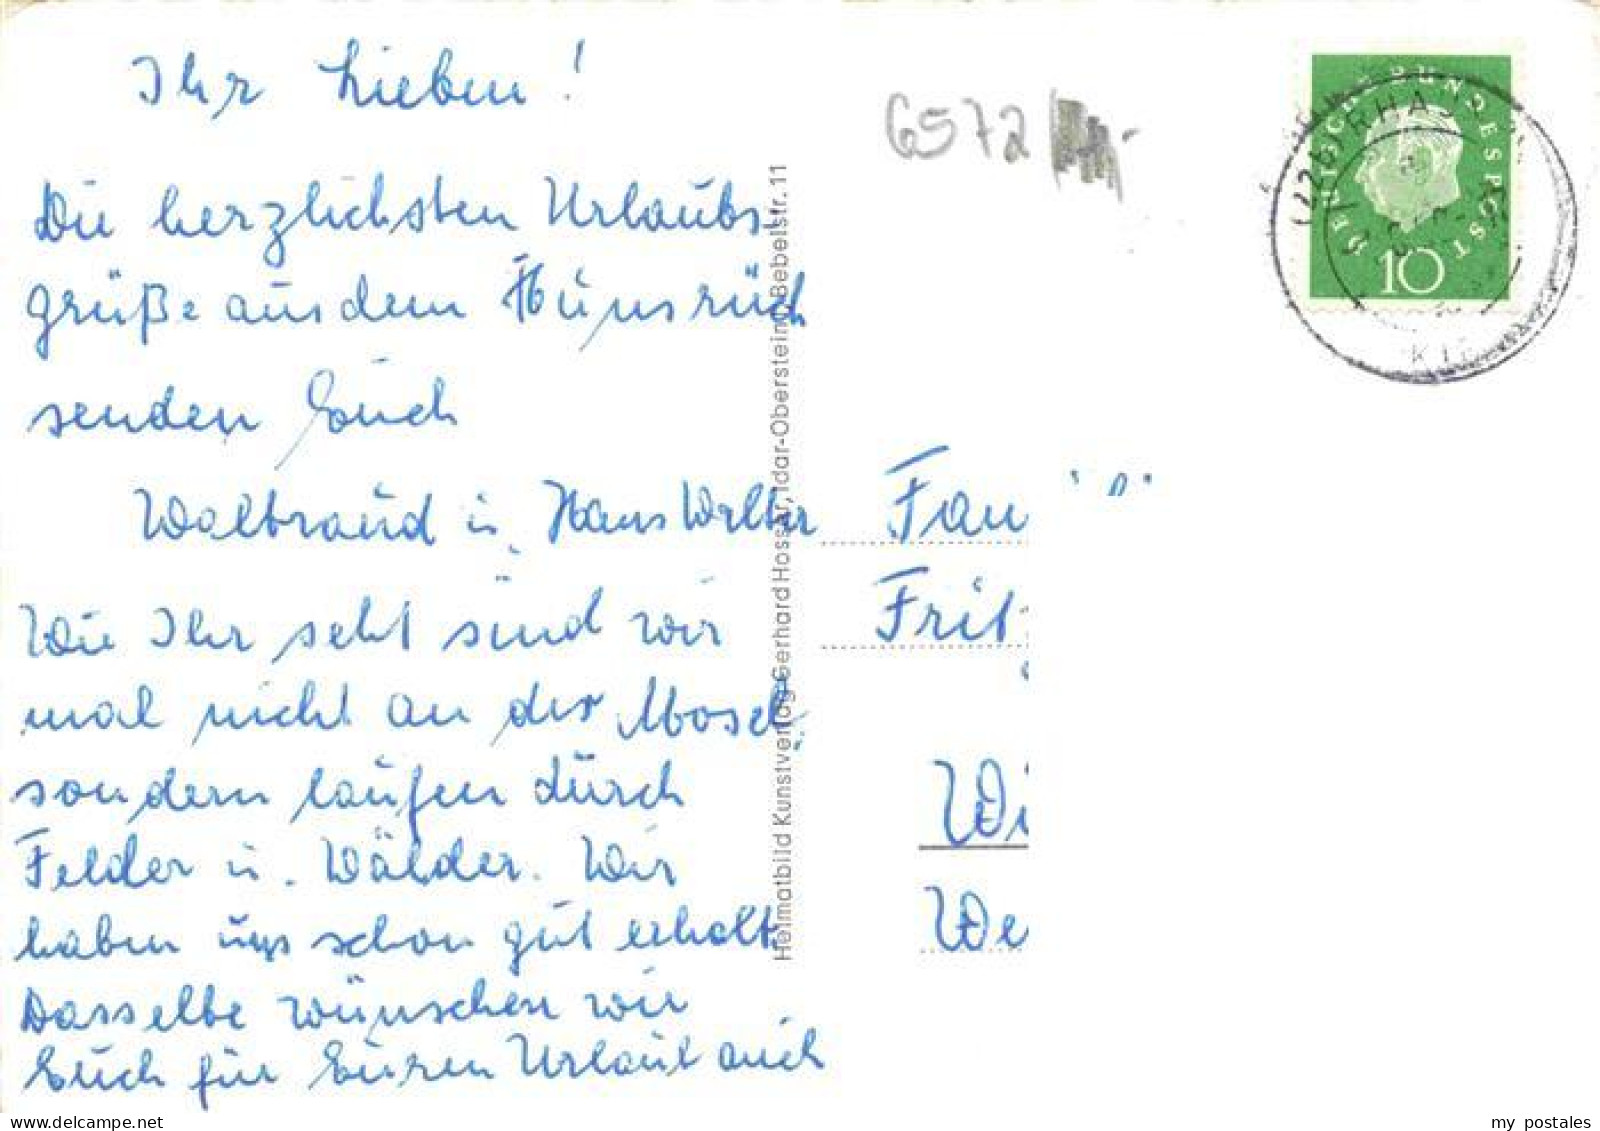 Ihr Lieben!
Die herzlichsten Urlaubs-
grüße aus dem Hunsrück
senden Euch
Walbraud u. Hans Walter
Wie Ihr seht sind wir
mal nicht an der Mosel,
sondern laufen durch
Felder u. Wälder. Wir
haben uns schon gut erholt.
Dasselbe wünschen wir
Euch für Euren Urlaub auch
Heimatbild Kunstverlag Gerhard Hossar, Idar-Oberstein, Bebelstr. 11
6572
DEUTSCHE BUNDESPOST
10
Fam
Fritz
Wi
We
my postales
www.delcampe.net